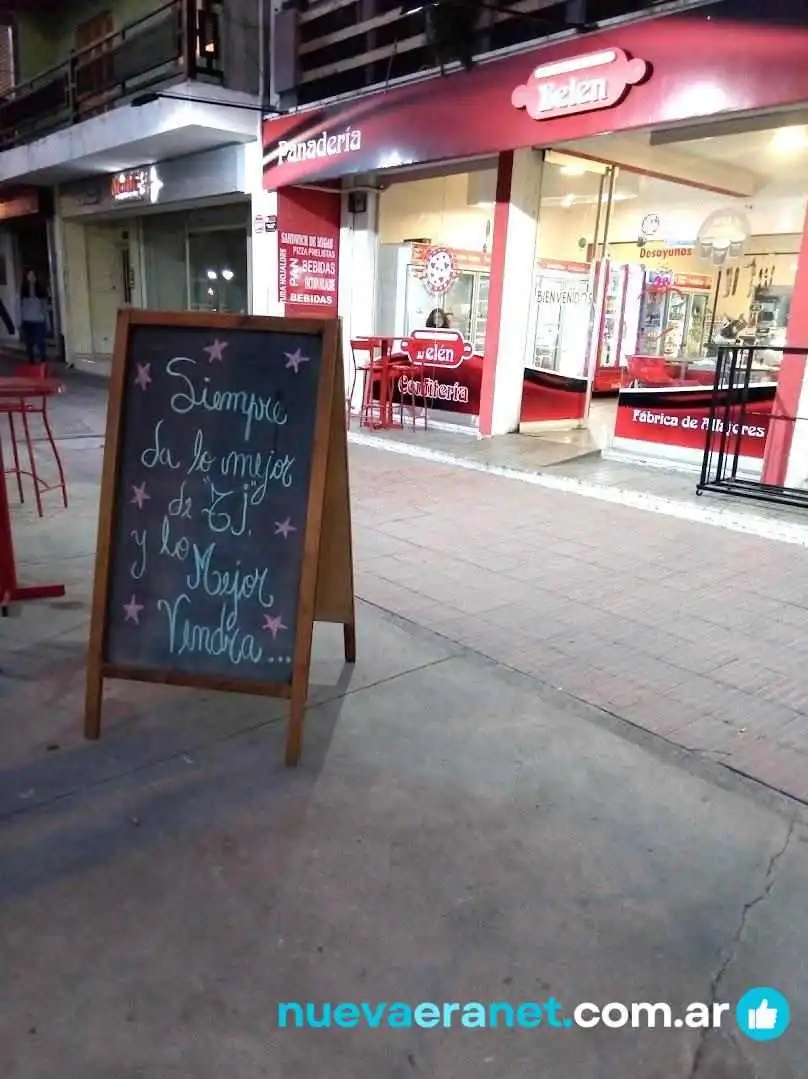 Belén
Panadería
SANDWICH DE MIGAS
PIZZA PRELISTAS
PAN
BEBIDAS
BEBIDAS
Desayunos
BIENVENIDOS
Belén
Confitería
Fábrica de Alfajores
Siempre
da lo mejor
de "TJ".
y lo
Mejor
Vendra...
nuevaeranet.com.ar